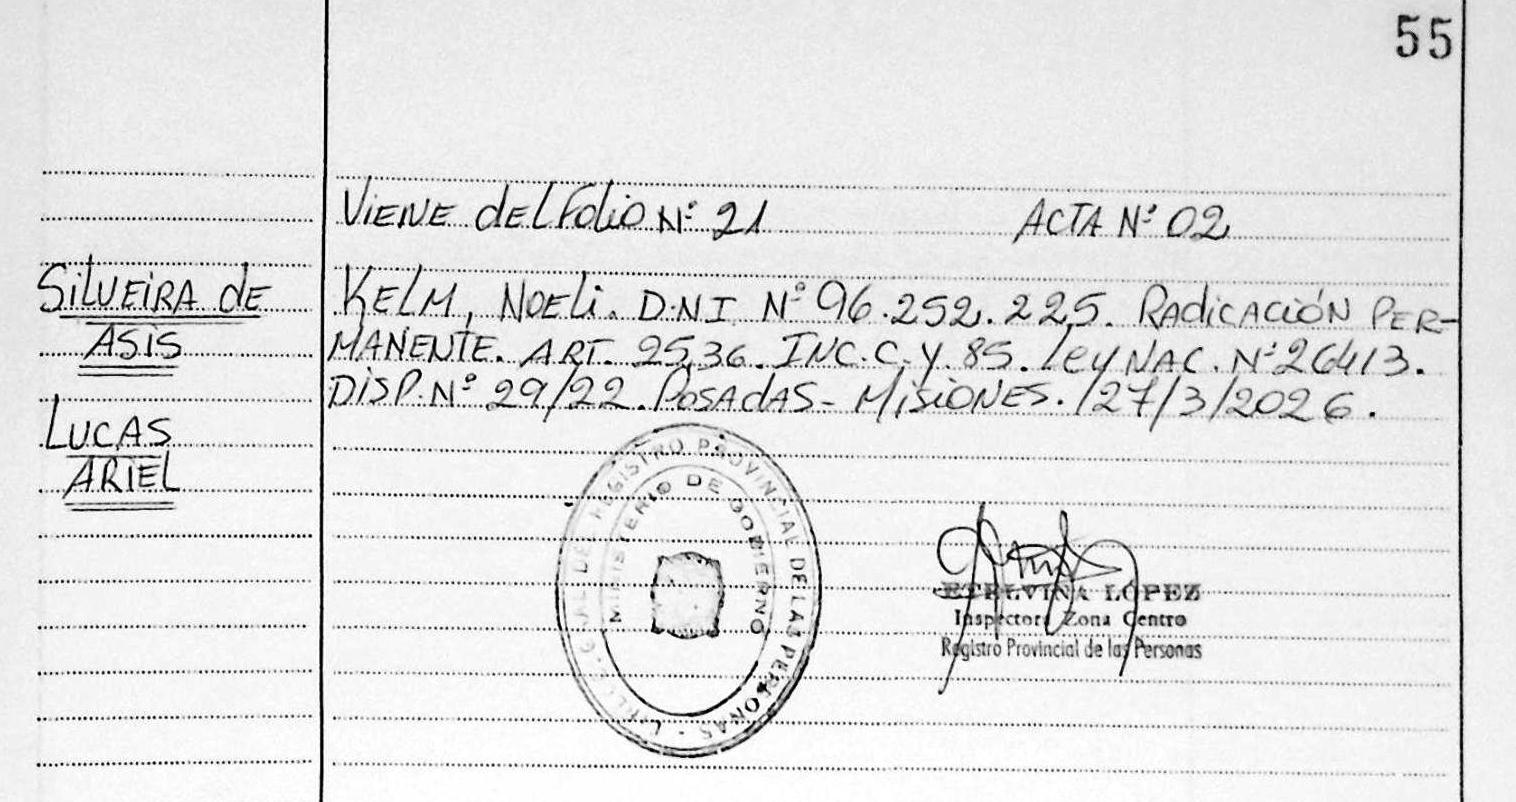 55
VIENE del Folio Nº 21 ACTA Nº 02
SilvEiRA dE
ASiS
LUCAS
ARiEL
KELM, NOEli. D.N.I Nº 96.252.225. RAdicACiÓN PER-
MANENTE. ART. 25,36. INC.C. y. 85. ley NAC. Nº 26413.
DISP. Nº 29/22. POSAdAS - MiSiONES. /27/3/2026.
REGISTRO PROVINCIAL DE LAS PERSONAS
MINISTERIO DE GOBIERNO
ETELVINA LÓPEZ
Inspectora Zona Centro
Registro Provincial de las Personas